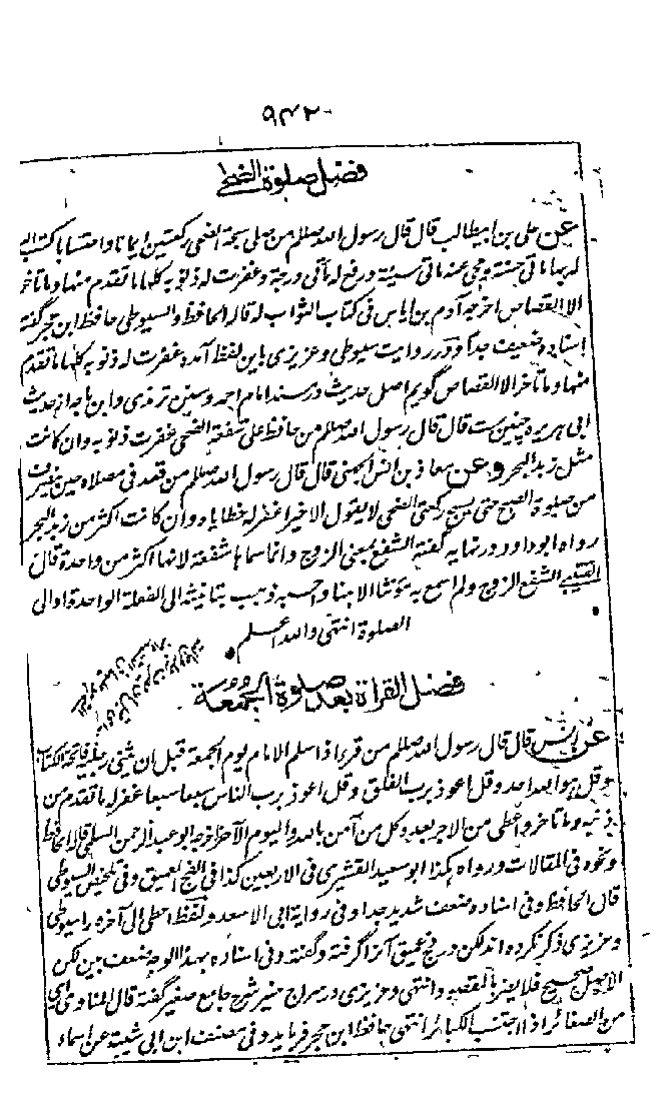 ۹۴۲
فضل صلوة الضحى
عن علی بن ابیطالب قال قال رسول الله صلم من صلی سبحة الضحی رکعتین ایمانا واحتسابا کتب الله
له بها مائتی حسنة ومحی عنه مائتی سیئة ورفع له مائتی درجة وغفرت له ذنوبه کلها ما تقدم منها وما تاخر
الا القصاص اخرجه آدم بن ایاس فی کتاب الثواب له قاله الحافظ والسیوطی حافظ ابن حجر گفته
اسناده ضعیف جدا ودر روایت سیوطی وعزیزی باین لفظ آمده غفرت له ذنوبه کلها ما تقدم
منها وما تاخر الا القصاص گویم اصل حدیث در مسند امام احمد وسنن ترمذی وابن ماجه از حدیث
ابی هریره چنین ست قال قال رسول الله صلم من حافظ علی شفعة الضحی غفرت ذنوبه وان کانت
مثل زبد البحر وعن معاذ بن انس الجهنی قال قال رسول الله صلم من قعد فی مصلاه حین ینصرف
من صلوة الصبح حتی یسبح رکعتی الضحی لا یقول الا خیرا غفر له خطایاه وان کانت اکثر من زبد البحر
رواه ابو داود ودر نهایه گفته الشفع بمعنی الزوج وانما سماها شفعة لانها اکثر من واحدة قال
القتیبی الشفع الزوج ولم اسمع به مؤنثا الا هنا واحسبه ذهب بتانیثه الی الفعلة الواحدة او الی
الصلوة انتهی والله اعلم
فضل القراة بعد صلوة الجمعة
عن انس قال قال رسول الله صلم من قرء اذا سلم الامام یوم الجمعة قبل ان یثنی رجلیه فاتحة الکتاب
وقل هو الله احد وقل اعوذ برب الفلق وقل اعوذ برب الناس سبعا سبعا غفر له ما تقدم من
ذنبه وما تاخر واعطی من الاجر بعدد کل من آمن بالله والیوم الآخر اخرجه ابو عبد الرحمن السلمی قاله الحافظ
ونحوه فی المقالات ورواه هکذا ابو سعید القشیری فی الاربعین کذا فی الفج العمیق وفی تلخیص السیوطی
قال الحافظ وفی اسناده ضعف شدید جدا وفی روایة ابی الاسعد ولفظ اعطی الی آخره را سیوطی
وعزیزی ذکر نکرده اند لکن در فج عمیق آنرا گرفته وگفته وفی اسناده بهذا الوجه ضعف بین لکن
الاصل صحیح فلا یضر القصه وانتهی وعزیزی در سراج منیر شرح جامع صغیر گفته قال المناوی ای
من الصغائر اذا اجتنب الکبائر انتهی حافظ ابن حجر فرماید وفی مصنف ابن ابی شیبة عن اسماء